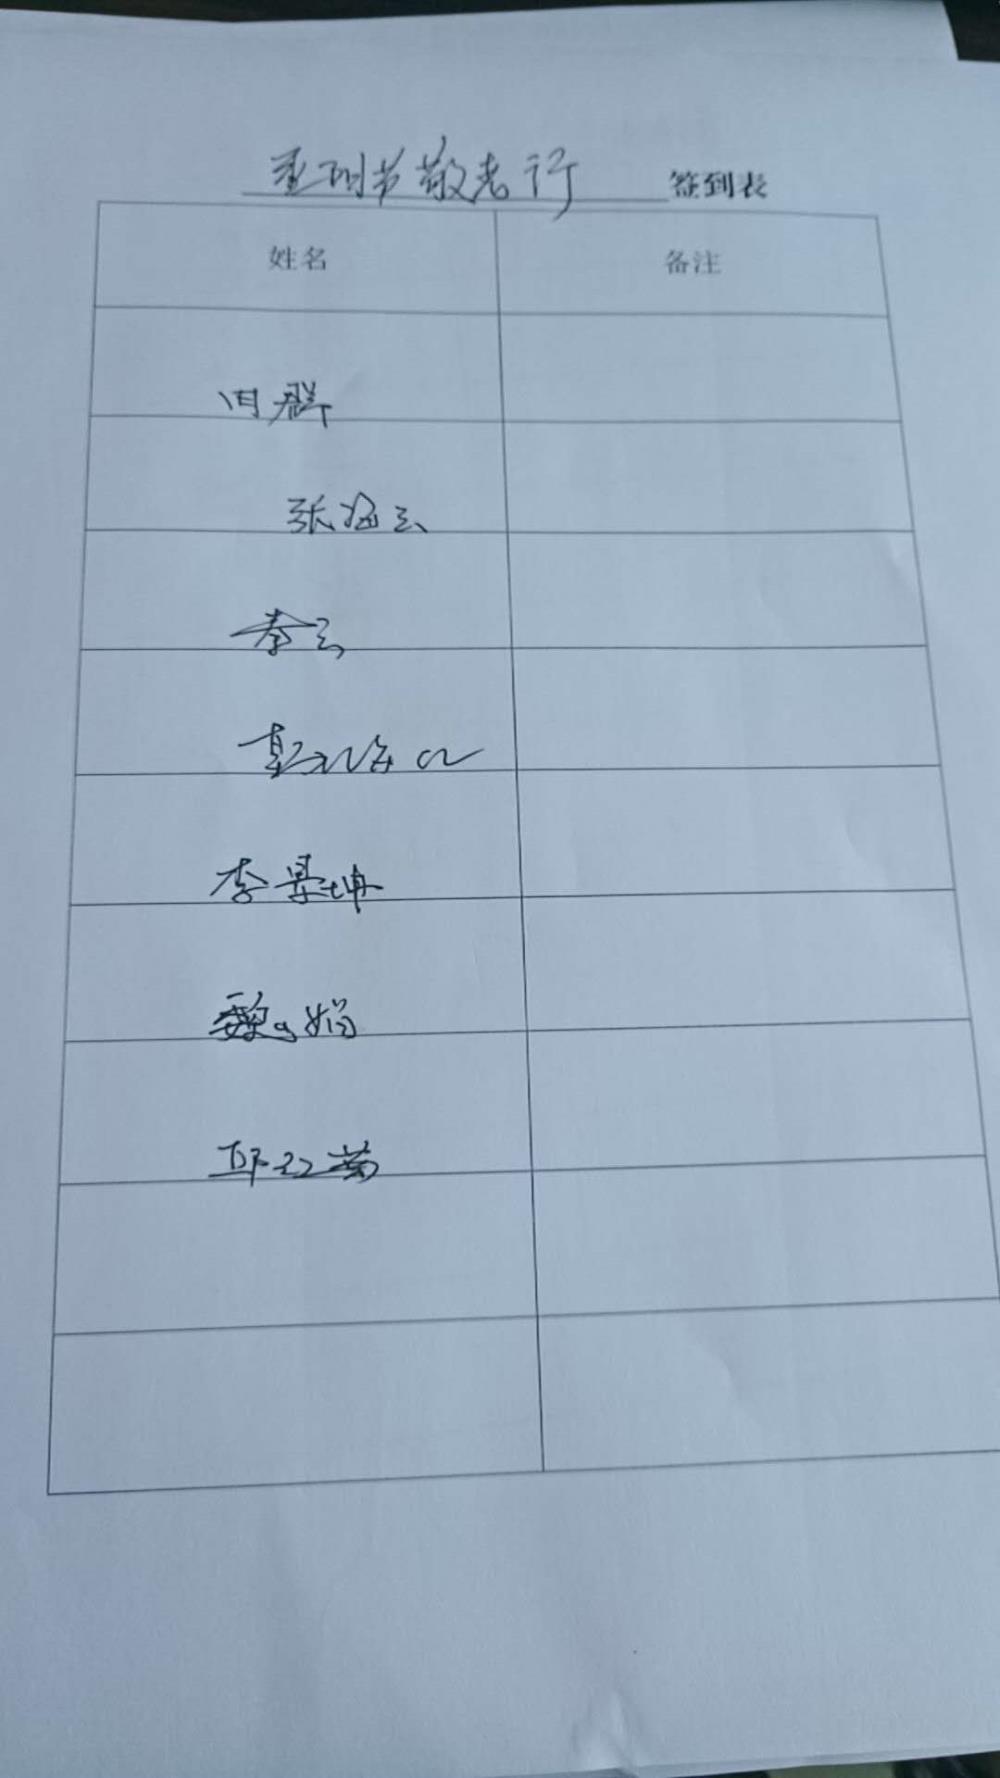 重阳节敬老行 签到表
姓名 备注
田群
张海云
秦云
李景坤
魏娟
邱红菊